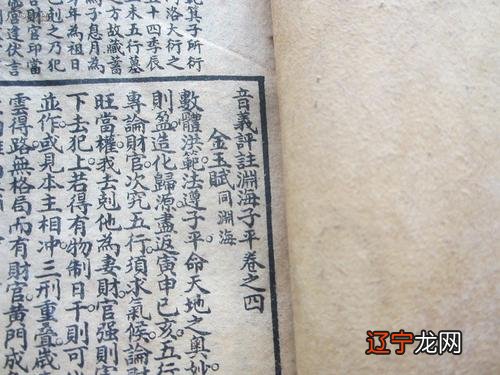 箕子所衍
河洛大衍之
五十四季辰
未五行墓
之方故藏蓄
子息月為
年為祖日
剋之乃犯
財官印當
達伏言
音義評註淵海子平卷之四
金玉賦 同淵海
數體洪範法遵子平命天地之奧妙
則盈造化歸源盡返寅申巳亥五行
專論財官次究五行須求氣候論財
旺當權我去剋他為妻財官強則
下去犯上若得有物制日干則可
並作或見本主相冲三刑重叠歲
雲得路無格局而有財官黃門成
辽宁龙网